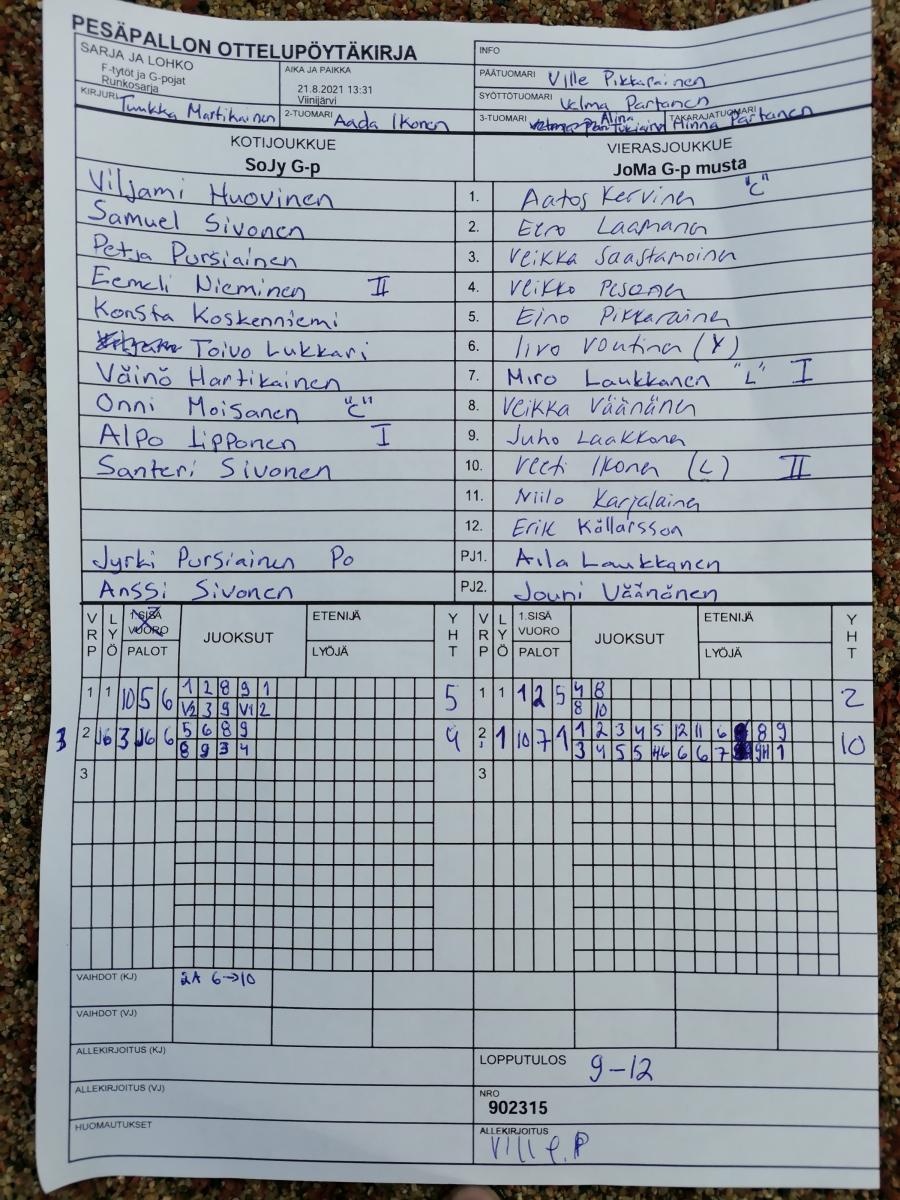 PESÄPALLON OTTELUPÖYTÄKIRJA
SARJA JA LOHKO
F-tytöt ja G-pojat
Runkosarja
AIKA JA PAIKKA
21.8.2021 13:31
Viinijärvi
INFO
PÄÄTUOMARI Ville Pikkarainen
SYÖTTÖTUOMARI Velma Partanen
KIRJURI Tuukka Martikainen
2-TUOMARI Aada Ikonen
3-TUOMARI Alina Tukiainen
TAKARAJATUOMARI Minna Partanen
KOTIJOUKKUE
SoJy G-p
VIERASJOUKKUE
JoMa G-p musta
Viljami Huovinen 1. Aatos Kervinen "C"
Samuel Sivonen 2. Eero Laamanen
Petja Pursiainen 3. Veikka Saastamoinen
Eemeli Nieminen II 4. Veikko Pesonen
Konsta Koskenniemi 5. Eino Pikkarainen
Toivo Lukkari 6. Iiro Voutinen (Y)
Väinö Hartikainen 7. Miro Laukkanen "L" I
Onni Moisanen "C" 8. Veikka Väänänen
Alpo Lipponen I 9. Juho Laakkonen
Santeri Sivonen 10. Veeti Ikonen (L) II
11. Niilo Karjalainen
12. Erik Källarsson
Jyrki Pursiainen Po PJ1. Aila Laukkanen
Anssi Sivonen PJ2. Jouni Väänänen
VRP LYÖ 1.SISÄ VUORO PALOT JUOKSUT ETENIJÄ LYÖJÄ YHT VRP LYÖ 1.SISÄ VUORO PALOT JUOKSUT ETENIJÄ LYÖJÄ YHT
1 1 10 5 6 1 2 8 9 1 5 1 1 1 2 5 4 8 2
V2 3 9 V1 2 8 10
3 2 J6 3 J6 6 5 6 8 9 4 2 1 10 7 1 1 2 3 4 5 12 11 6 8 9 10
8 9 3 4 3 4 5 5 H6 6 6 7 9H 1
3 3
VAIHDOT (KJ) 2A 6→10
VAIHDOT (VJ)
ALLEKIRJOITUS (KJ)
LOPPUTULOS 9-12
ALLEKIRJOITUS (VJ)
NRO
902315
HUOMAUTUKSET
ALLEKIRJOITUS
Ville.P